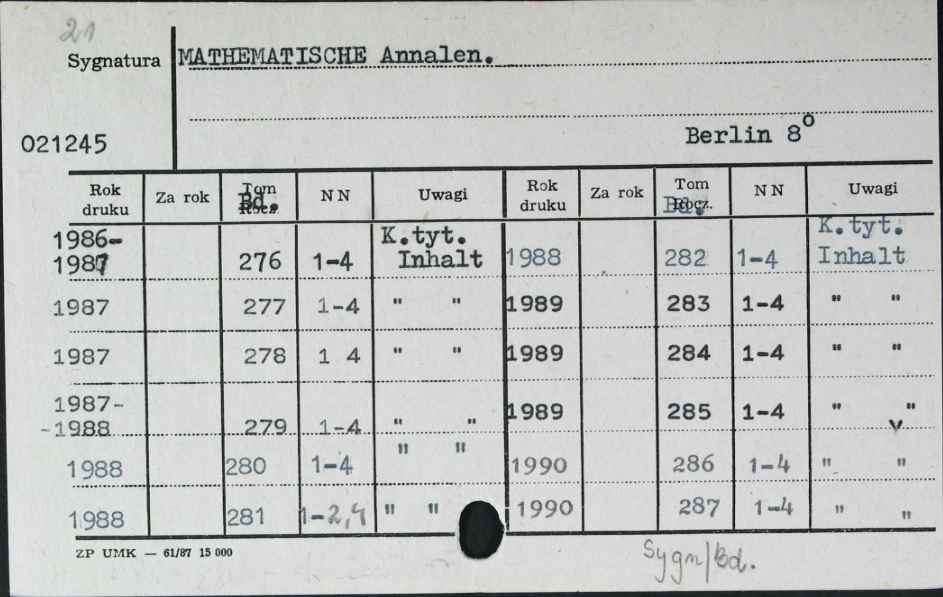 21
Sygnatura MATHEMATISCHE Annalen.
021245
Berlin 8o
Rok druku Za rok Tom Rocz. Bd. NN Uwagi Rok druku Za rok Tom Rocz. Bd. NN Uwagi
1986-1987 276 1-4 K.tyt. Inhalt 1988 282 1-4 K.tyt. Inhalt
1987 277 1-4 " " 1989 283 1-4 " "
1987 278 1 4 " " 1989 284 1-4 " "
1987--1988 279 1-4 " " 1989 285 1-4 " "
1988 280 1-4 " " 1990 286 1-4 " "
1988 281 1-2,4 " " 1990 287 1-4 " "
ZP UMK — 61/87 15 000
Sygn/Bd.